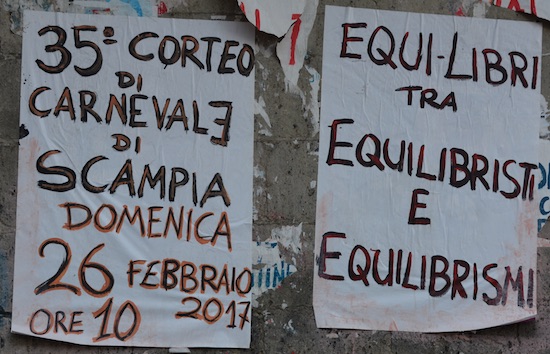 35° CORTEO
DI
CARNEVALE
DI
SCAMPIA
DOMENICA
26 FEBBRAIO
2017
ORE 10
EQUI-LIBRI
TRA
EQUILIBRISTI
E
EQUILIBRISMI